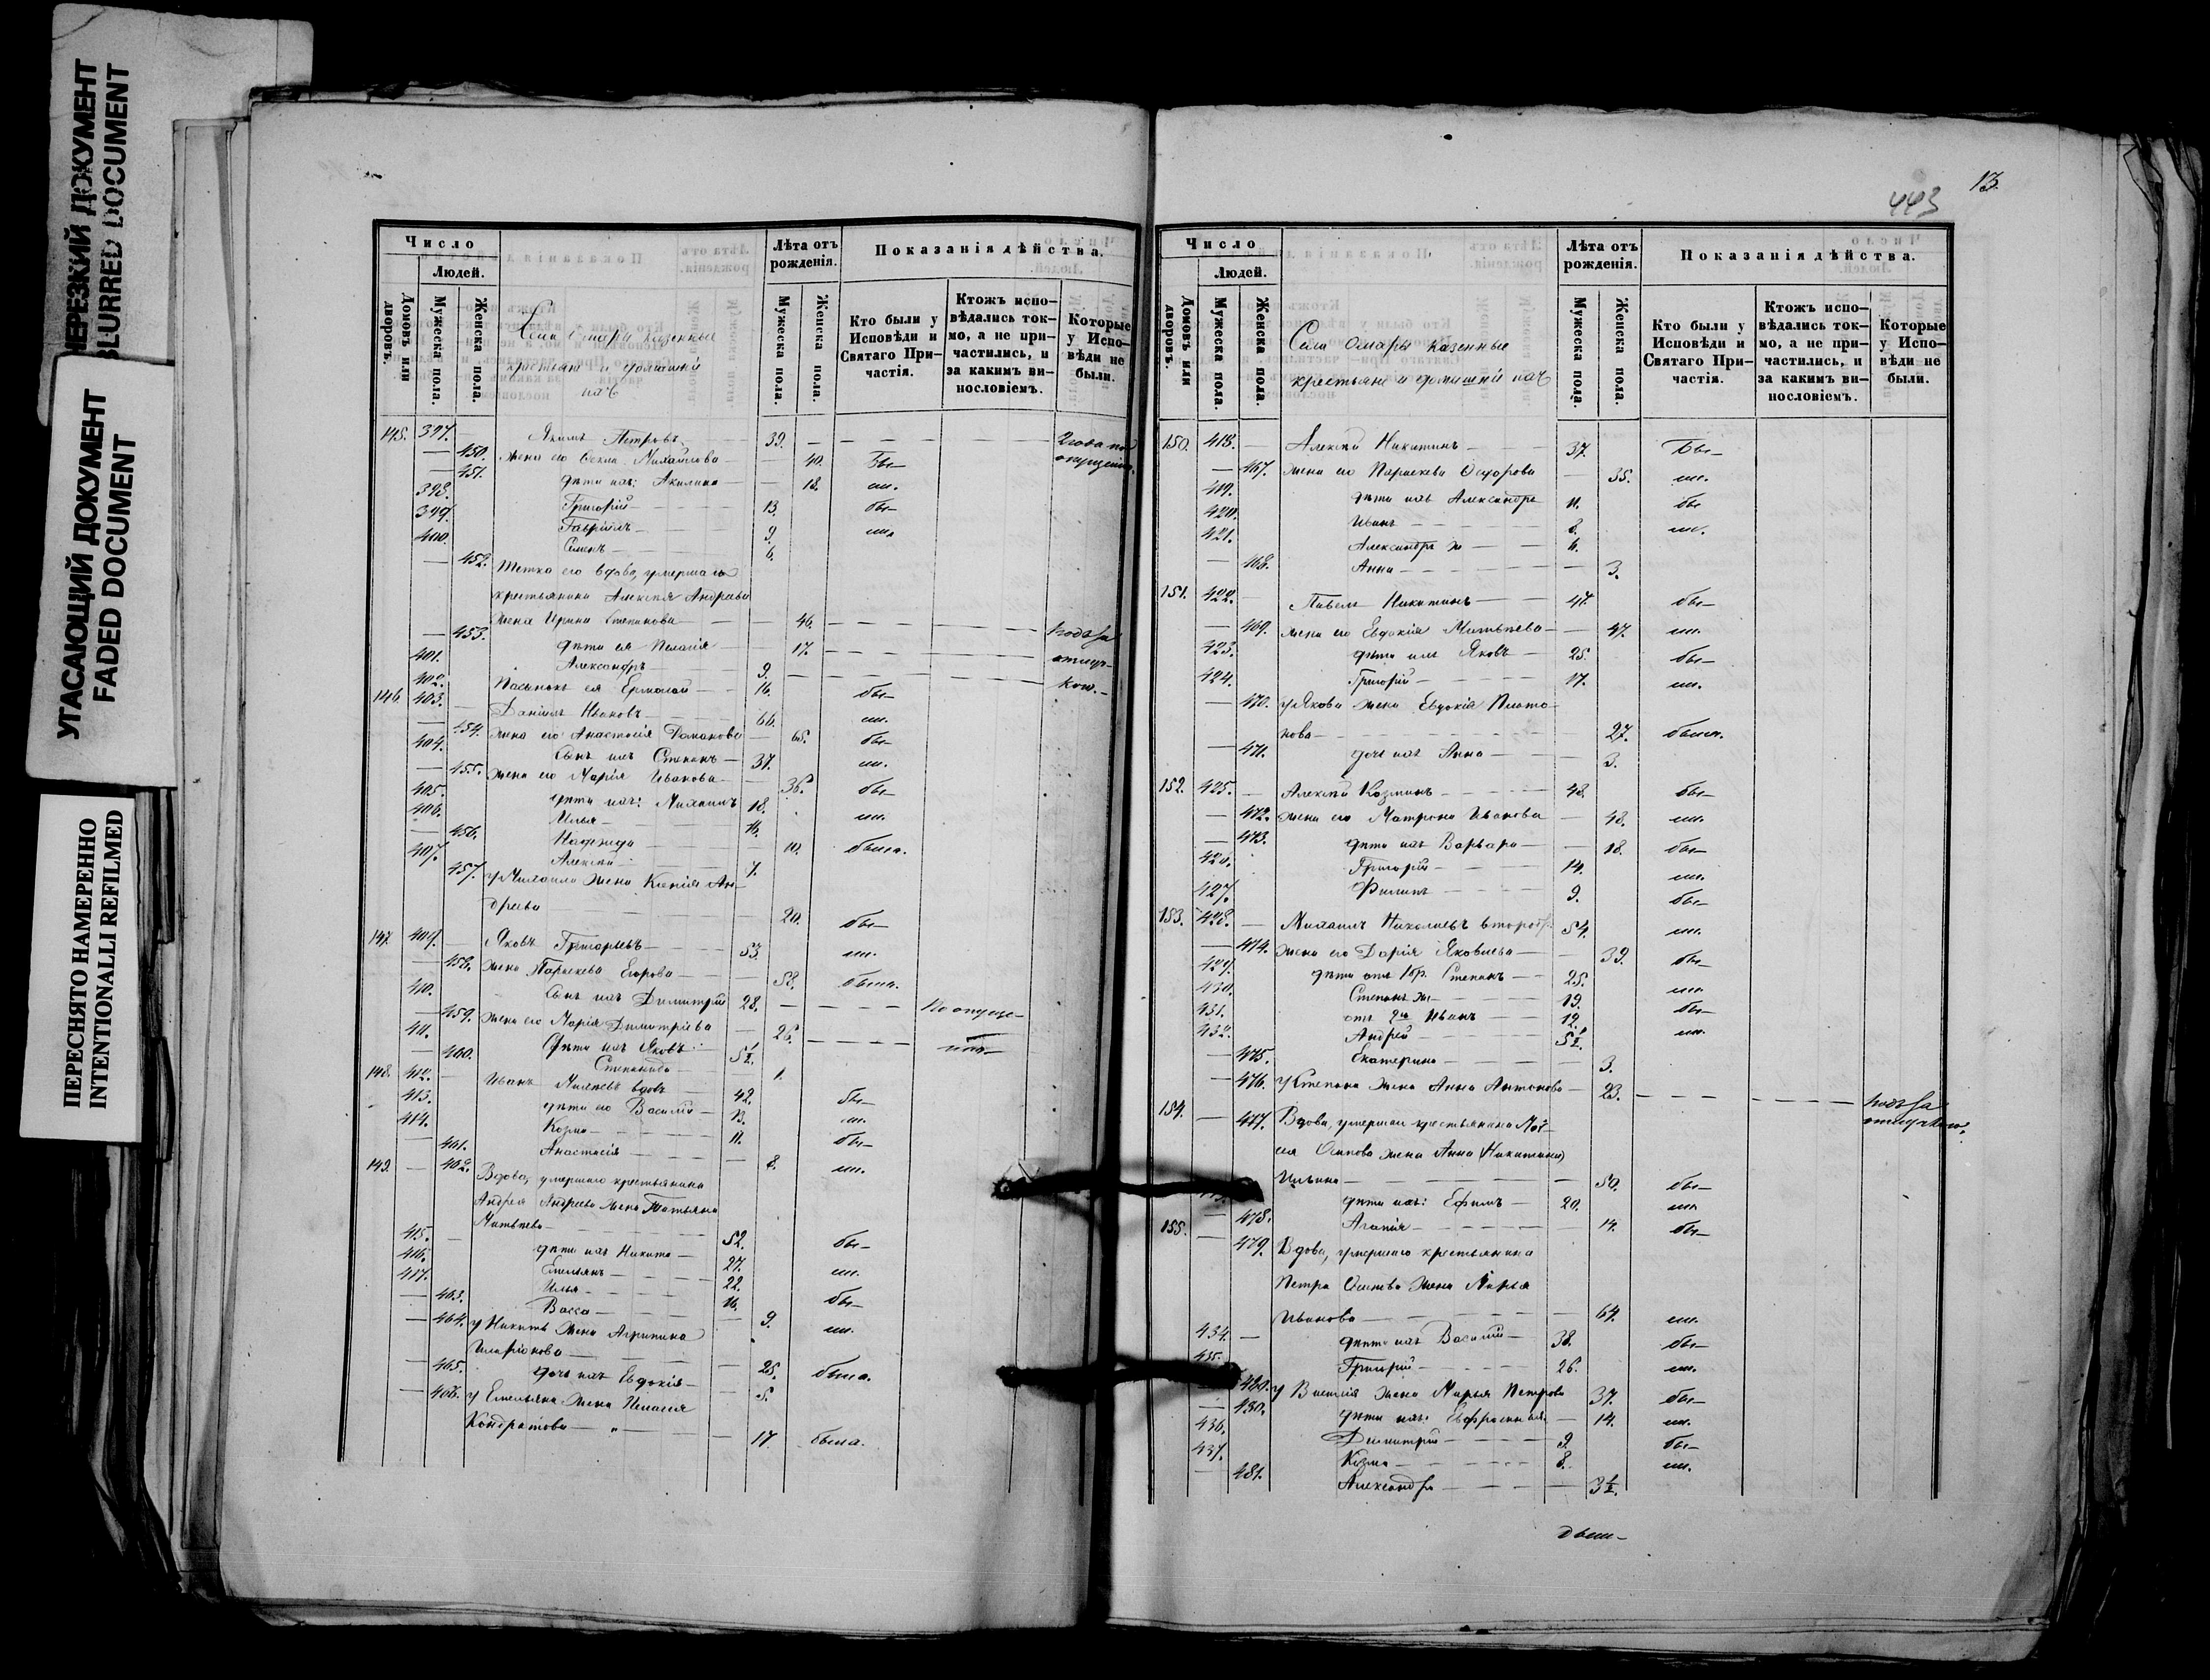 НЕРЕЗКИЙ ДОКУМЕНТ
BLURRED DOCUMENT
УГАСАЮЩИЙ ДОКУМЕНТ
FADED DOCUMENT
ПЕРЕСНЯТО НАМЕРЕННО
INTENTIONALLI REFILMED
Число
Людей.
Домовъ или дворовъ.
Мужеска пола.
Женска пола.
Села Омары казенные
крестьяне и домашніе
ихъ
Лѣта отъ рожденія.
Мужеска пола.
Женска пола.
Показанія дѣйства.
Кто были у Исповѣди и Святаго При-частія.
Ктожъ испо-вѣдались ток-мо, а не при-частились, и за какимъ ви-нословіемъ.
Которые у Испо-вѣди не были.
145. 397. — Якимъ Петровъ — 39. —
— 450. жена его Фекла Михайлова — 40. бы—
— 451. дѣти ихъ: Акилина — 18. ли.
398. Григорій — 13. бы—
399. Гавріилъ — 9. ли.
400. Семенъ — 6.
— 452. Тетка его вдова, умершаго
крестьянина Алексѣя Андреева
жена Ирина Степанова — 46. —
— 453. дѣти ея Пелагія — 17. —
401. Александръ — 9.
402. Пасынокъ ея Ермолай — 16. бы—
146. 403. Даніилъ Ивановъ — 66. ли.
— 454. жена его Анастасія Романова — 65. бы—
404. Сынъ ихъ Степанъ — 37. ли.
— 455. жена его Марія Иванова — 36. бы—
405. дѣти ихъ: Михаилъ 18. ли.
406. Илья — 16.
— 456. Надежда — 10. была.
407. Алексѣй — 7.
— 457. у Михаила жена Ксенія Ан-
дреева — 20. бы—
147. 409. — Яковъ Григорьевъ — 53. ли.
— 458. жена Параскева Егорова — 58. была.
410. Сынъ ихъ Димитрій 28. —
— 459. жена его Марія Димитріева — 26. —
411. дѣти ихъ Яковъ 5½.
— 460. Степанида — 1.
148. 412. — Иванъ вдовъ — 42. бы—
413. дѣти его Василій — 13. ли.
414. Козма — 11. бы—
— 461. Анастасія — 8. ли.
149. — 462. Вдова, умершаго крестьянина
Андрея Андреева жена Татьяна
Матвѣева — 52. бы—
415. дѣти ихъ Никита — 27. ли.
416. Емельянъ — 22. бы—
417. Илья — 16.
— 463. Васса — 9. ли.
— 464. у Никиты жена Агрипина
Иларіонова — 25. была.
— 465. дочь ихъ Евдокія — 5.
— 466. у Емельяна жена Пелагея
Кондратова — 17. была.
443
13.
Число
Людей.
Домовъ или дворовъ.
Мужеска пола.
Женска пола.
Села Омары казенные
крестьяне и домашніе ихъ
Лѣта отъ рожденія.
Мужеска пола.
Женска пола.
Показанія дѣйства.
Кто были у Исповѣди и Святаго При-частія.
Ктожъ испо-вѣдались ток-мо, а не при-частились, и за какимъ ви-нословіемъ.
Которые у Испо-вѣди не были.
150. 418. — Алексѣй Никитинъ — 37. бы—
— 467. жена его Параскева Федорова — 35. ли.
419. дѣти ихъ Александръ 11. бы
420. Иванъ — 8. ли.
421. Александръ же — 6.
— 468. Анна — 3.
151. 422. — Павелъ Никитинъ — 47. бы—
— 469. жена его Евдокія Матвѣева — 47. ли.
423. дѣти ихъ Яковъ — 25. бы—
424. Григорій — 17. ли.
— 470. у Якова жена Евдокія Плато-
нова — 27. была.
— 471. дочь ихъ Анна — 3.
152. 425. — Алексѣй Козминъ — 48. бы—
— 472. жена его Матрона Иванова — 48. ли.
— 473. дѣти ихъ Варвара — 18. бы—
426. Григорій — 14. ли.
427. Филипъ — 9. бы—
153. 428. — Михаилъ Николаевъ второбр. 54. ли.
— 474. жена его Дарія Яковлева — 39. бы—
429. дѣти отъ 1 бр. Степанъ — 25. ли.
430. Степанъ же — 19. бы—
431. отъ 2го Иванъ — 12. ли.
432. Андрей — 5½.
— 475. Екатерина — 3.
— 476. у Степана жена Анна Антонова — 23. —
154. — 477. Вдова, умершаго крестьянина Мои-
сея Осипова жена Анна (Никитина)
Ильина — 50. бы—
дѣти ихъ: Ефимъ — 20. ли.
— 478. Агапія — 14. бы—
155. — 479. Вдова, умершаго крестьянина
Петра Осипова жена Марья
Иванова — 64. ли.
434. — дѣти ихъ Василій — 38. бы—
435. Григорій — 26. ли.
480. у Василія жена Марья Петрова 37. бы—
— 480. дѣти ихъ: Евфросинія — 14. ли.
436. Димитрій — 9. бы—
437. Козма — 8. ли.
— 481. Александра — 3½.